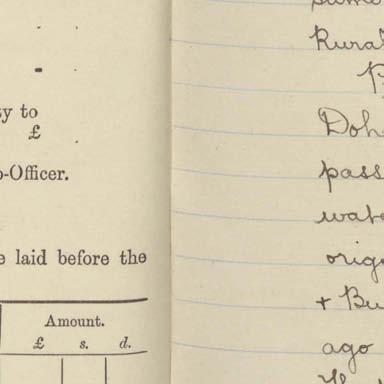 y to
£
-Officer.
laid before the
Amount.
£ s. d.
Rural
Doh
pass
wat
orig
+ Bu
ago